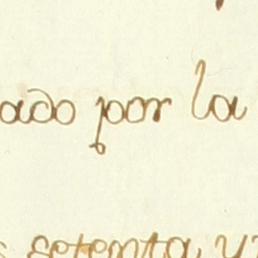 ado por la
setenta y